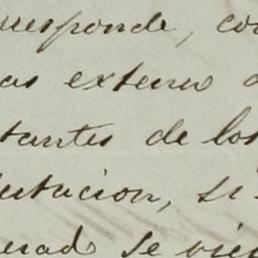 responde, co
as extenso
tantes de los
titucion, si
erado se vie